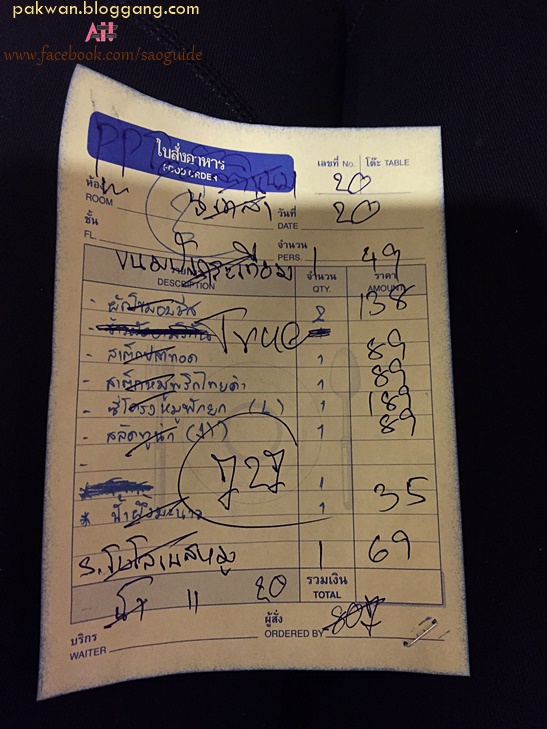 pakwan.bloggang.com
www.facebook.com/saoguide
ใบสั่งอาหาร
FOOD ORDER
เลขที่ No. โต๊ะ TABLE
20
ห้อง
ROOM
วันที่
DATE 20
ชั้น
FL.
จำนวน
PERS.
ขนมปังกระเทียม 1 49
รายการ จำนวน ราคา
DESCRIPTION QTY. AMOUNT
- ผักโขมอบชีส 2 138
True
- สเต็กปลาทอด 1 89
- สเต็กหมูพริกไทยดำ 1 89
- ซี่โครงหมูพักยก (L) 1 189
- สลัดทูน่า (J1) 1 89
-
727
1
* น้ำผึ้งมะนาว 1 35
s.โบโลเนสหมู 1 69
11 20
รวมเงิน
TOTAL
บริกร
WAITER
ผู้สั่ง
ORDERED BY 807